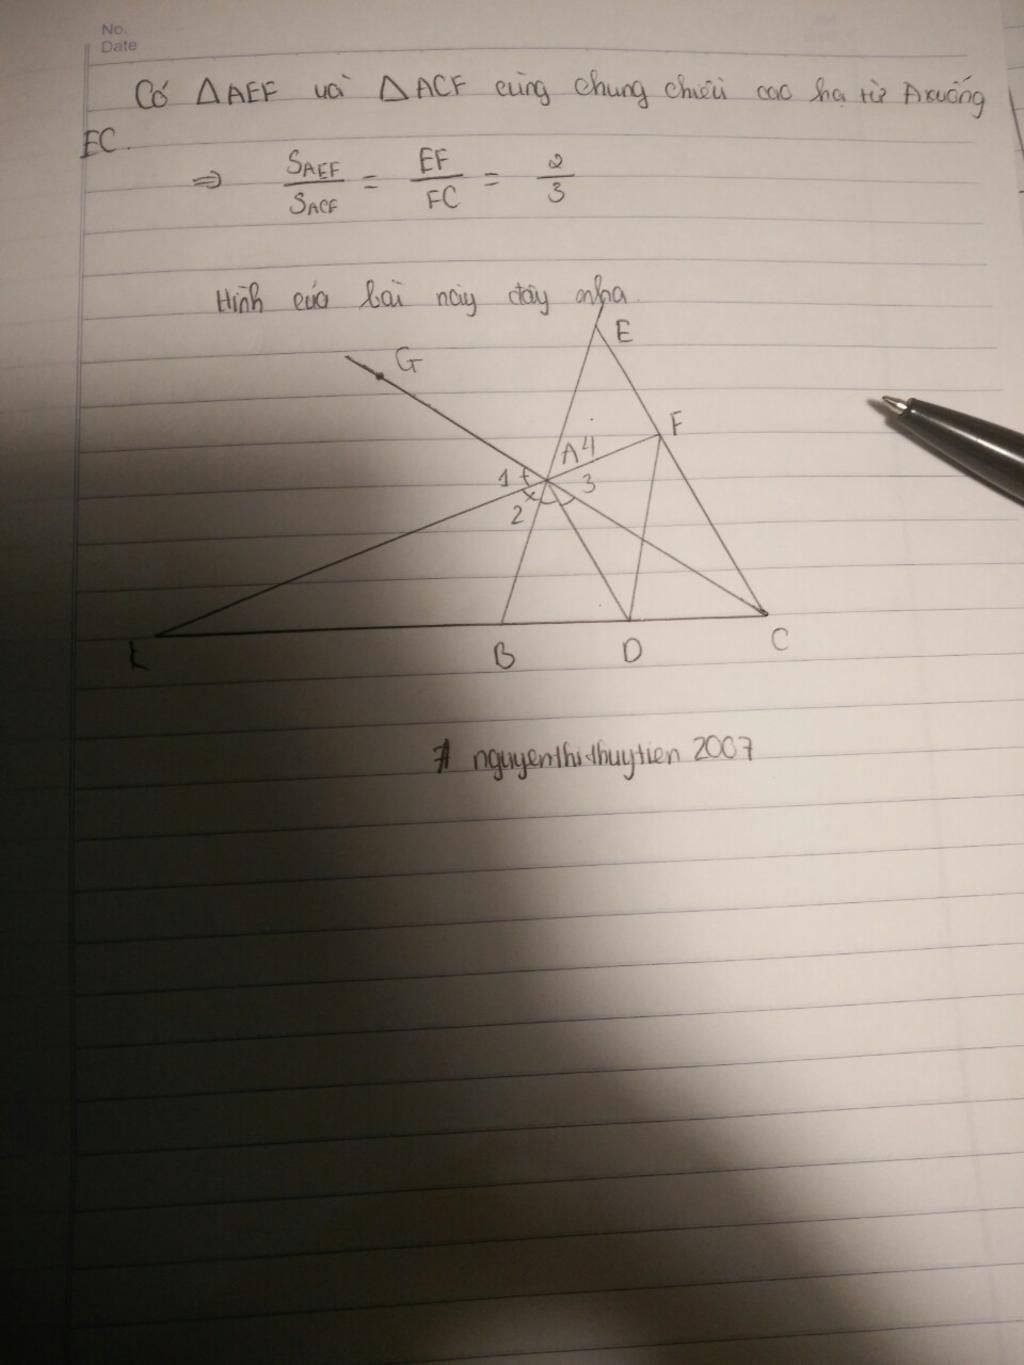 No.
Date
Có △AEF và △ACF cùng chung chiều cao hạ từ A xuống
EC.
⇒ S_AEF / S_ACF = EF / FC = 2 / 3
Hình của bài này đây nha
E
G
F
A 4
1
3
2
K B D C
nguyenthithuytien 2007